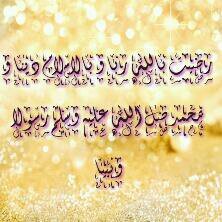 رضيت بالله ربا و بالاسلام دينا و
بمحمد صلى الله عليه وسلم رسولا
و نبيا